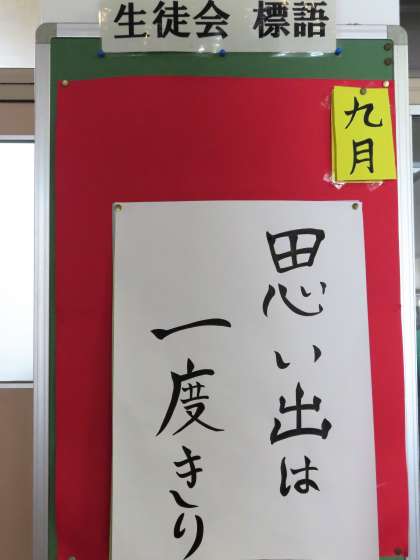 生徒会 標語
九月
思い出は
一度きり